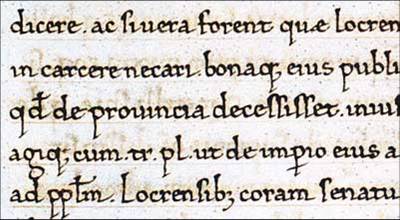 dicere. ac si uera forent quæ locren
in carcere necari. bonaq; eius publi
qđ de prouincia decessisset. iniu
agiq; cum. tr. pl. ut de imperio eius a
ad ppłm. Locrensib; coram senatu